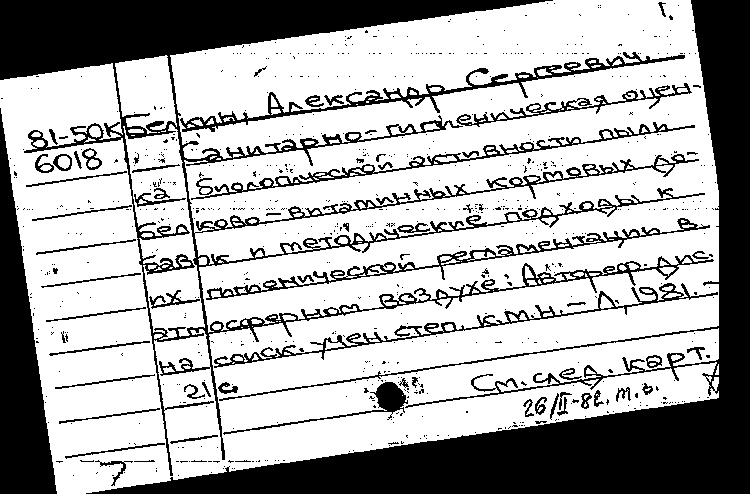 1.
81-50К Белкин, Александр Сергеевич.
6018 Санитарно-гигиеническая оцен-
ка биологической активности пыли
белково-витаминных кормовых до-
бавок и методические подходы к
их гигиенической регламентации в
атмосферном воздухе: Автореф. дис.
на соиск. учен. степ. к.м.н. - Л., 1981. -
21 с.
См. след. карт.
26/II-82. т.з.
7